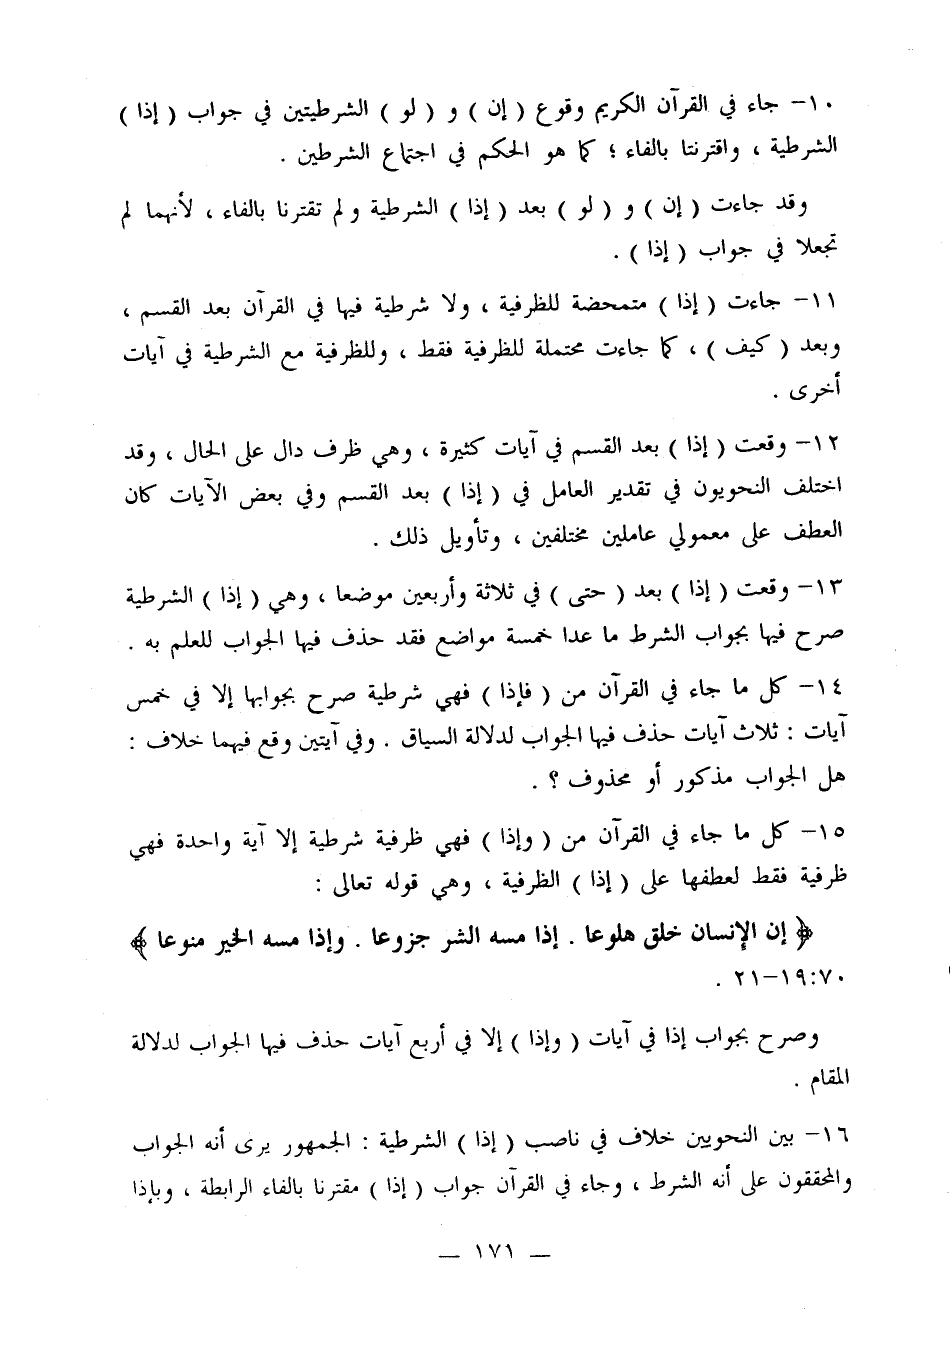 ١٠- جاء في القرآن الكريم وقوع ( إن ) و ( لو ) الشرطيتين في جواب ( إذا )
الشرطية ، واقترنتا بالفاء ؛ كما هو الحكم في اجتماع الشرطين .
وقد جاءت ( إن ) و ( لو ) بعد ( إذا ) الشرطية ولم تقترنا بالفاء ، لأنهما لم
تجعلا في جواب ( إذا ) .
١١- جاءت ( إذا ) متمحضة للظرفية ، ولا شرطية فيها في القرآن بعد القسم ،
وبعد ( كيف ) ، كما جاءت محتملة للظرفية فقط ، وللظرفية مع الشرطية في آيات
أخرى .
١٢- وقعت ( إذا ) بعد القسم في آيات كثيرة ، وهي ظرف دال على الحال ، وقد
اختلف النحويون في تقدير العامل في ( إذا ) بعد القسم وفي بعض الآيات كان
العطف على معمولي عاملين مختلفين ، وتأويل ذلك .
١٣- وقعت ( إذا ) بعد ( حتى ) في ثلاثة وأربعين موضعا ، وهي ( إذا ) الشرطية
صرح فيها بجواب الشرط ما عدا خمسة مواضع فقد حذف فيها الجواب للعلم به .
١٤- كل ما جاء في القرآن من ( فإذا ) فهي شرطية صرح بجوابها إلا في خمس
آيات : ثلاث آيات حذف فيها الجواب لدلالة السياق . وفي آيتين وقع فيهما خلاف :
هل الجواب مذكور أو محذوف ؟ .
١٥- كل ما جاء في القرآن من ( وإذا ) فهي ظرفية شرطية إلا آية واحدة فهي
ظرفية فقط لعطفها على ( إذا ) الظرفية ، وهي قوله تعالى :
﴿ إن الإنسان خلق هلوعا . إذا مسه الشر جزوعا . وإذا مسه الخير منوعا ﴾
٧٠:١٩-٢١ .
وصرح بجواب إذا في آيات ( وإذا ) إلا في أربع آيات حذف فيها الجواب لدلالة
المقام .
١٦- بين النحويين خلاف في ناصب ( إذا ) الشرطية : الجمهور يرى أنه الجواب
والمحققون على أنه الشرط ، وجاء في القرآن جواب ( إذا ) مقترنا بالفاء الرابطة ، وبإذا
— ١٧١ —